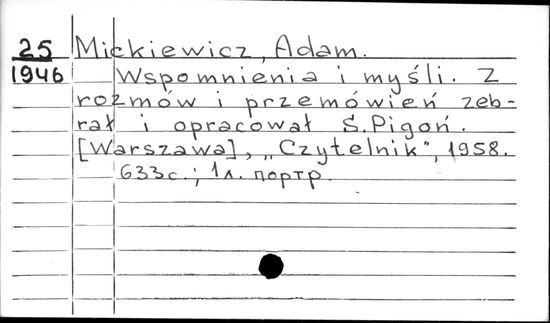 25 Mickiewicz, Adam.
1946 Wspomnienia i myśli. Z
rozmów i przemówień zeb-
rał i opracował S. Pigoń.
[Warszawa], „Czytelnik", 1958.
633с.; 1л. портр.